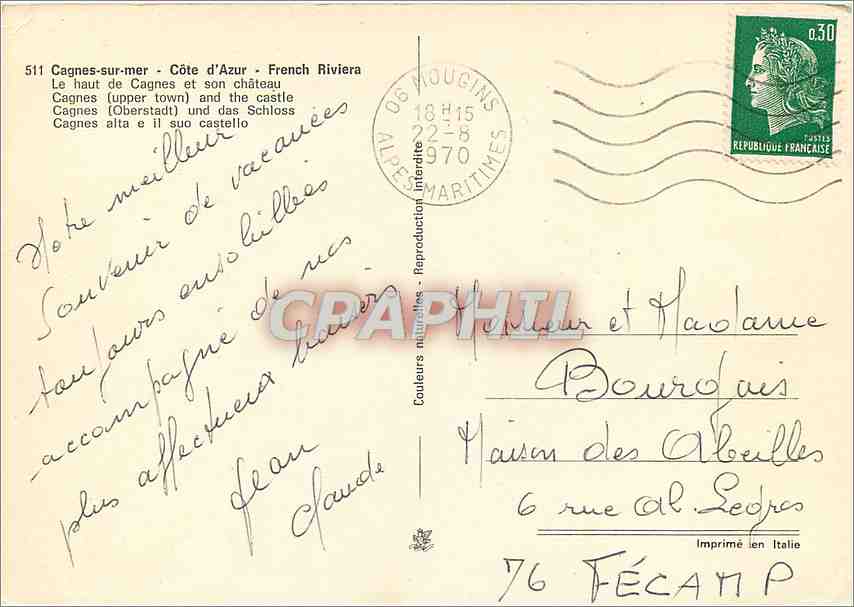 511 Cagnes-sur-mer - Côte d'Azur - French Riviera
Le haut de Cagnes et son château
Cagnes (upper town) and the castle
Cagnes (Oberstadt) und das Schloss
Cagnes alta e il suo castello
Notre meilleur
Souvenir de vacances
toujours ensoleillées
accompagné de nos
plus affectueux baisers
Jean
Claude
Couleurs naturelles - Reproduction interdite
06 MOUGINS
18H15
22-8
1970
ALPES-MARITIMES
0.30
POSTES
REPUBLIQUE FRANÇAISE
CPARPHIL
Monsieur et Madame
Bourgais
Maison des Abeilles
6 rue Al. Legros
Imprimé en Italie
76 FÉCAMP